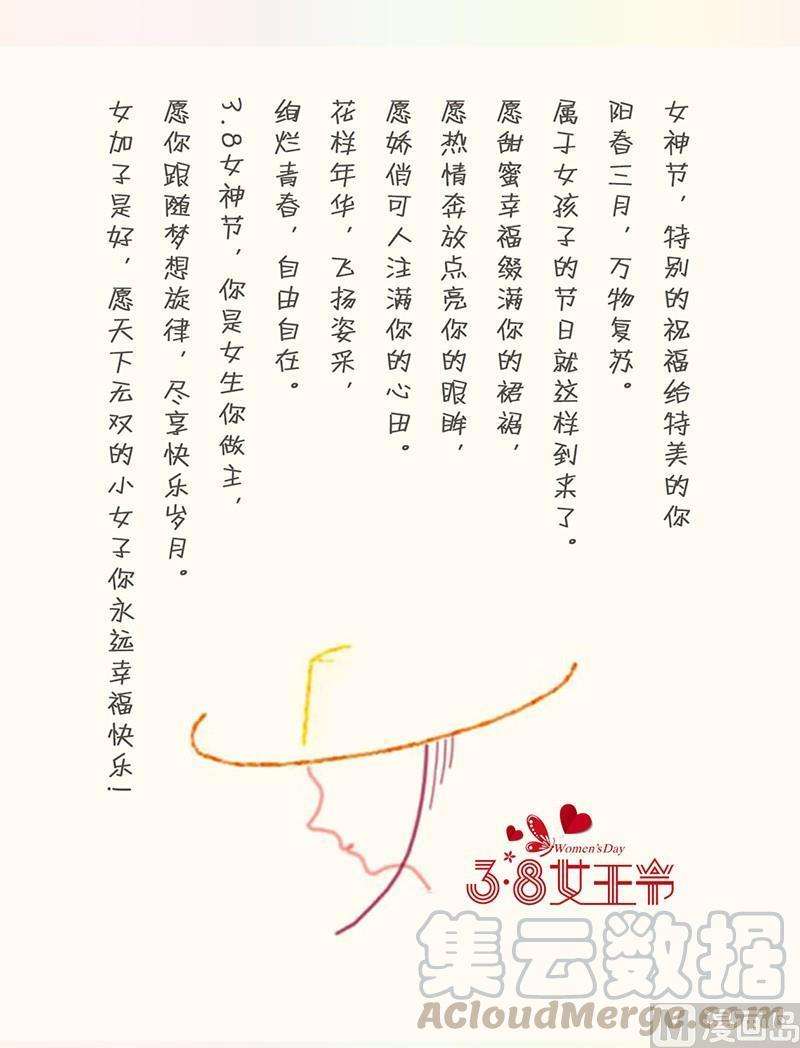 女神节,特别的祝福给特美的你
阳春三月,万物复苏。
属于女孩子的节日就这样到来了。
愿甜蜜幸福缀满你的裙裾,
愿热情奔放点亮你的眼眸,
愿娇俏可人注满你的心田。
花样年华,飞扬姿采,
绚烂青春,自由自在。
3.8女神节,你是女生你做主,
愿你跟随梦想旋律,尽享快乐岁月。
女加子是好,愿天下无双的小女子你永远幸福快乐!
Women's Day
3·8女王节
集云数据
ACloudMerge.com
漫画岛